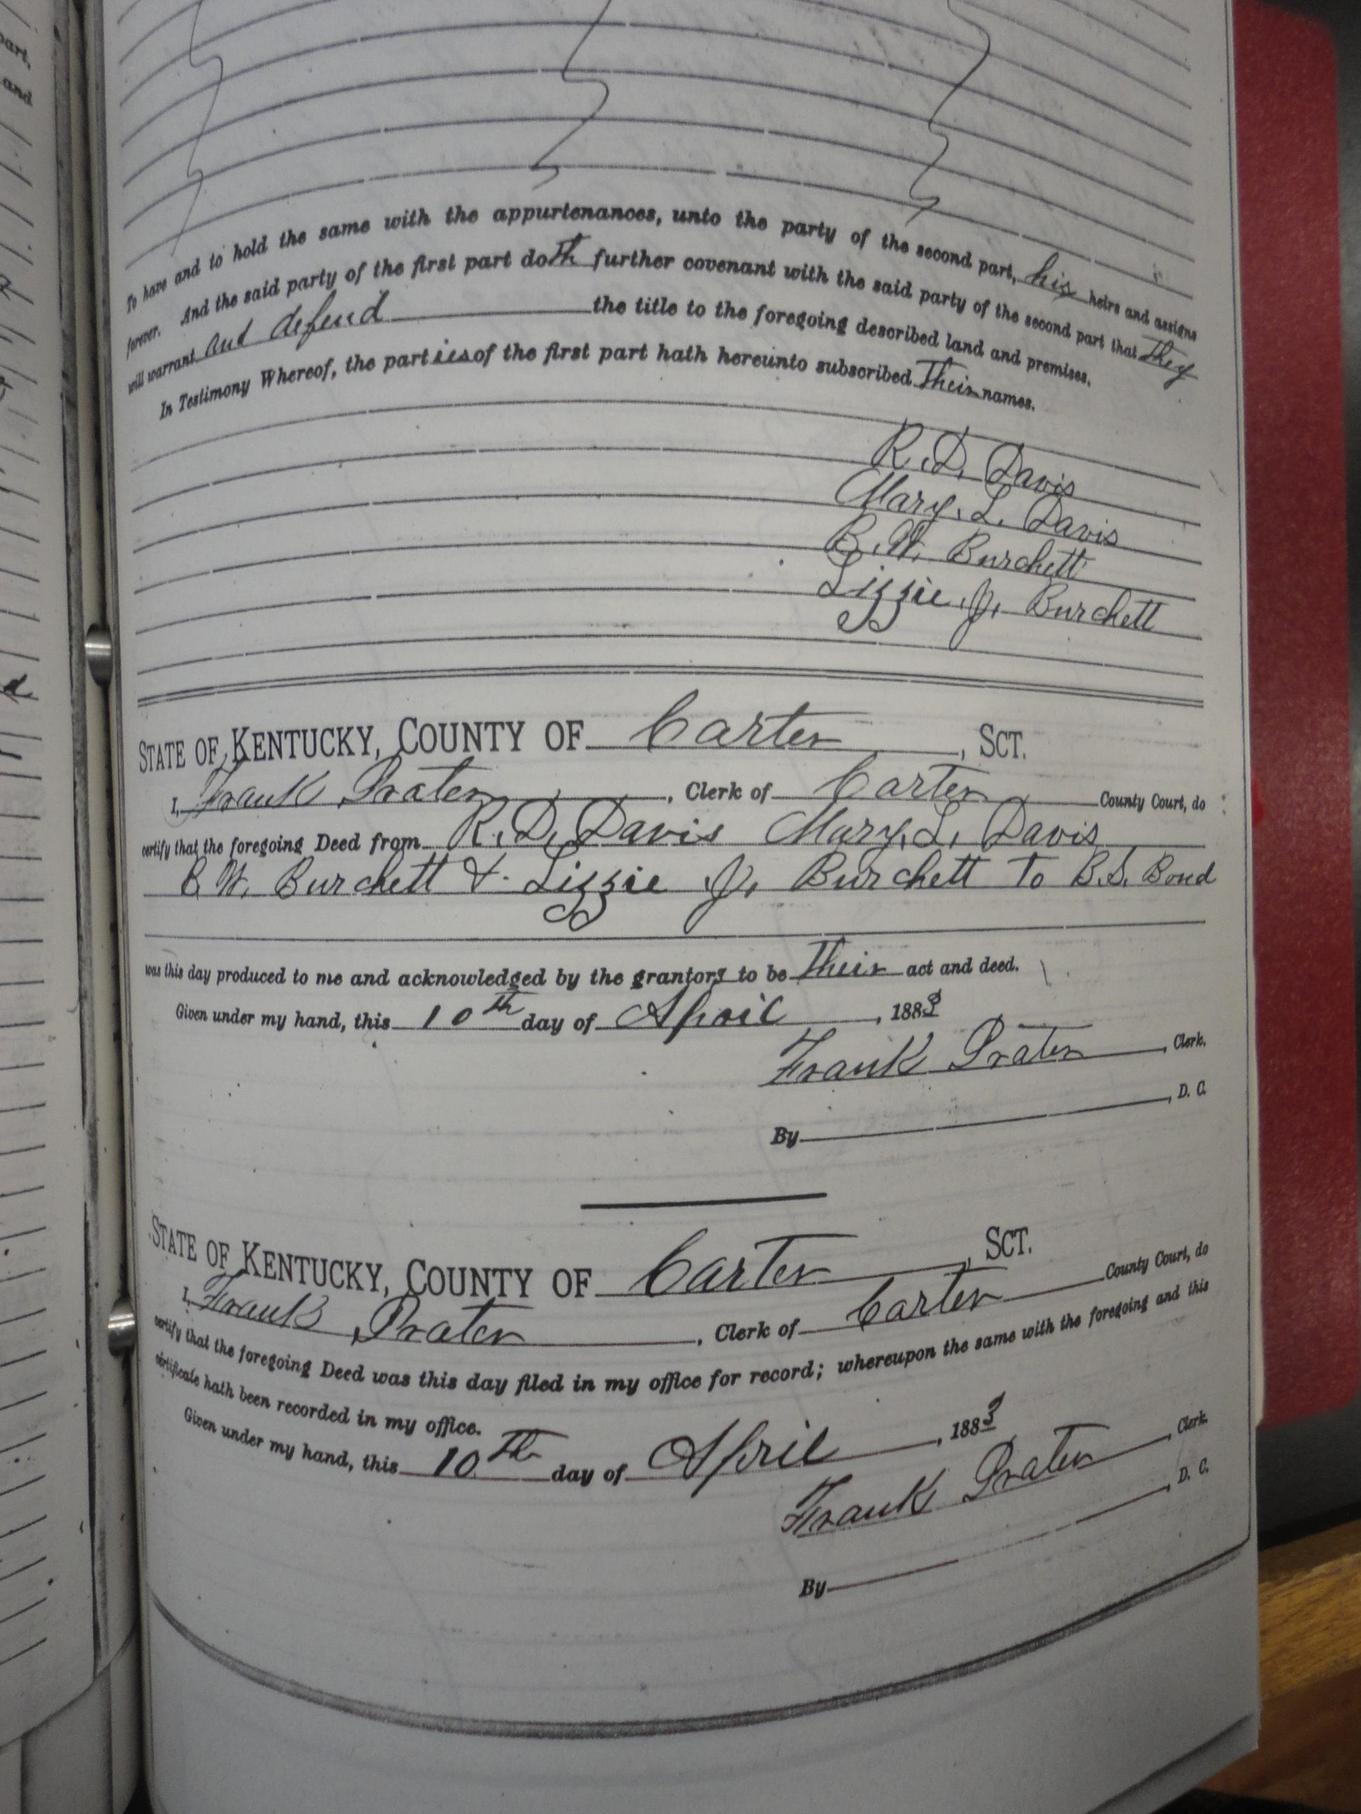 part,
and
To have and to hold the same with the appurtenances, unto the party of the second part, his heirs and assigns
forever. And the said party of the first part doth further covenant with the said party of the second part that They
will warrant and defend the title to the foregoing described land and premises.
In Testimony Whereof, the parties of the first part hath hereunto subscribed Their names.
R. D. Davis
Mary. L. Davis
B. W. Burchett
Lizzie. J. Burchett
STATE OF KENTUCKY, COUNTY OF Carter, SCT.
I, Frank Prater, Clerk of Carter County Court, do
certify that the foregoing Deed from R. D. Davis Mary. L. Davis
B W. Burchett &. Lizzie J. Burchett To B. S. Bond
was this day produced to me and acknowledged by the grantors to be Their act and deed.
Given under my hand, this 10th day of April, 1883
Frank Prater, Clerk.
By, D. C.
STATE OF KENTUCKY, COUNTY OF Carter, SCT.
I, Frank Prater, Clerk of Carter County Court, do
certify that the foregoing Deed was this day filed in my office for record; whereupon the same with the foregoing and this
certificate hath been recorded in my office.
Given under my hand, this 10Th day of April, 1883
Frank Prater, Clerk.
By, D. C.